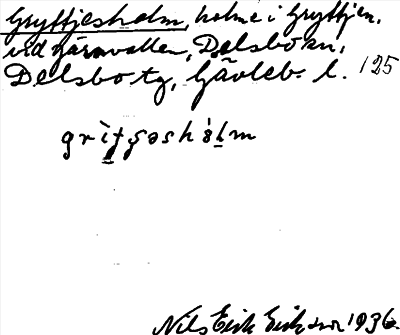 Gryttjesholm, holme i Gryttjen,
vid Häravallen, Delsbo sn,
Delsbo tg, Gävleb. l. 125
Nils Erik Eriksson 1936.